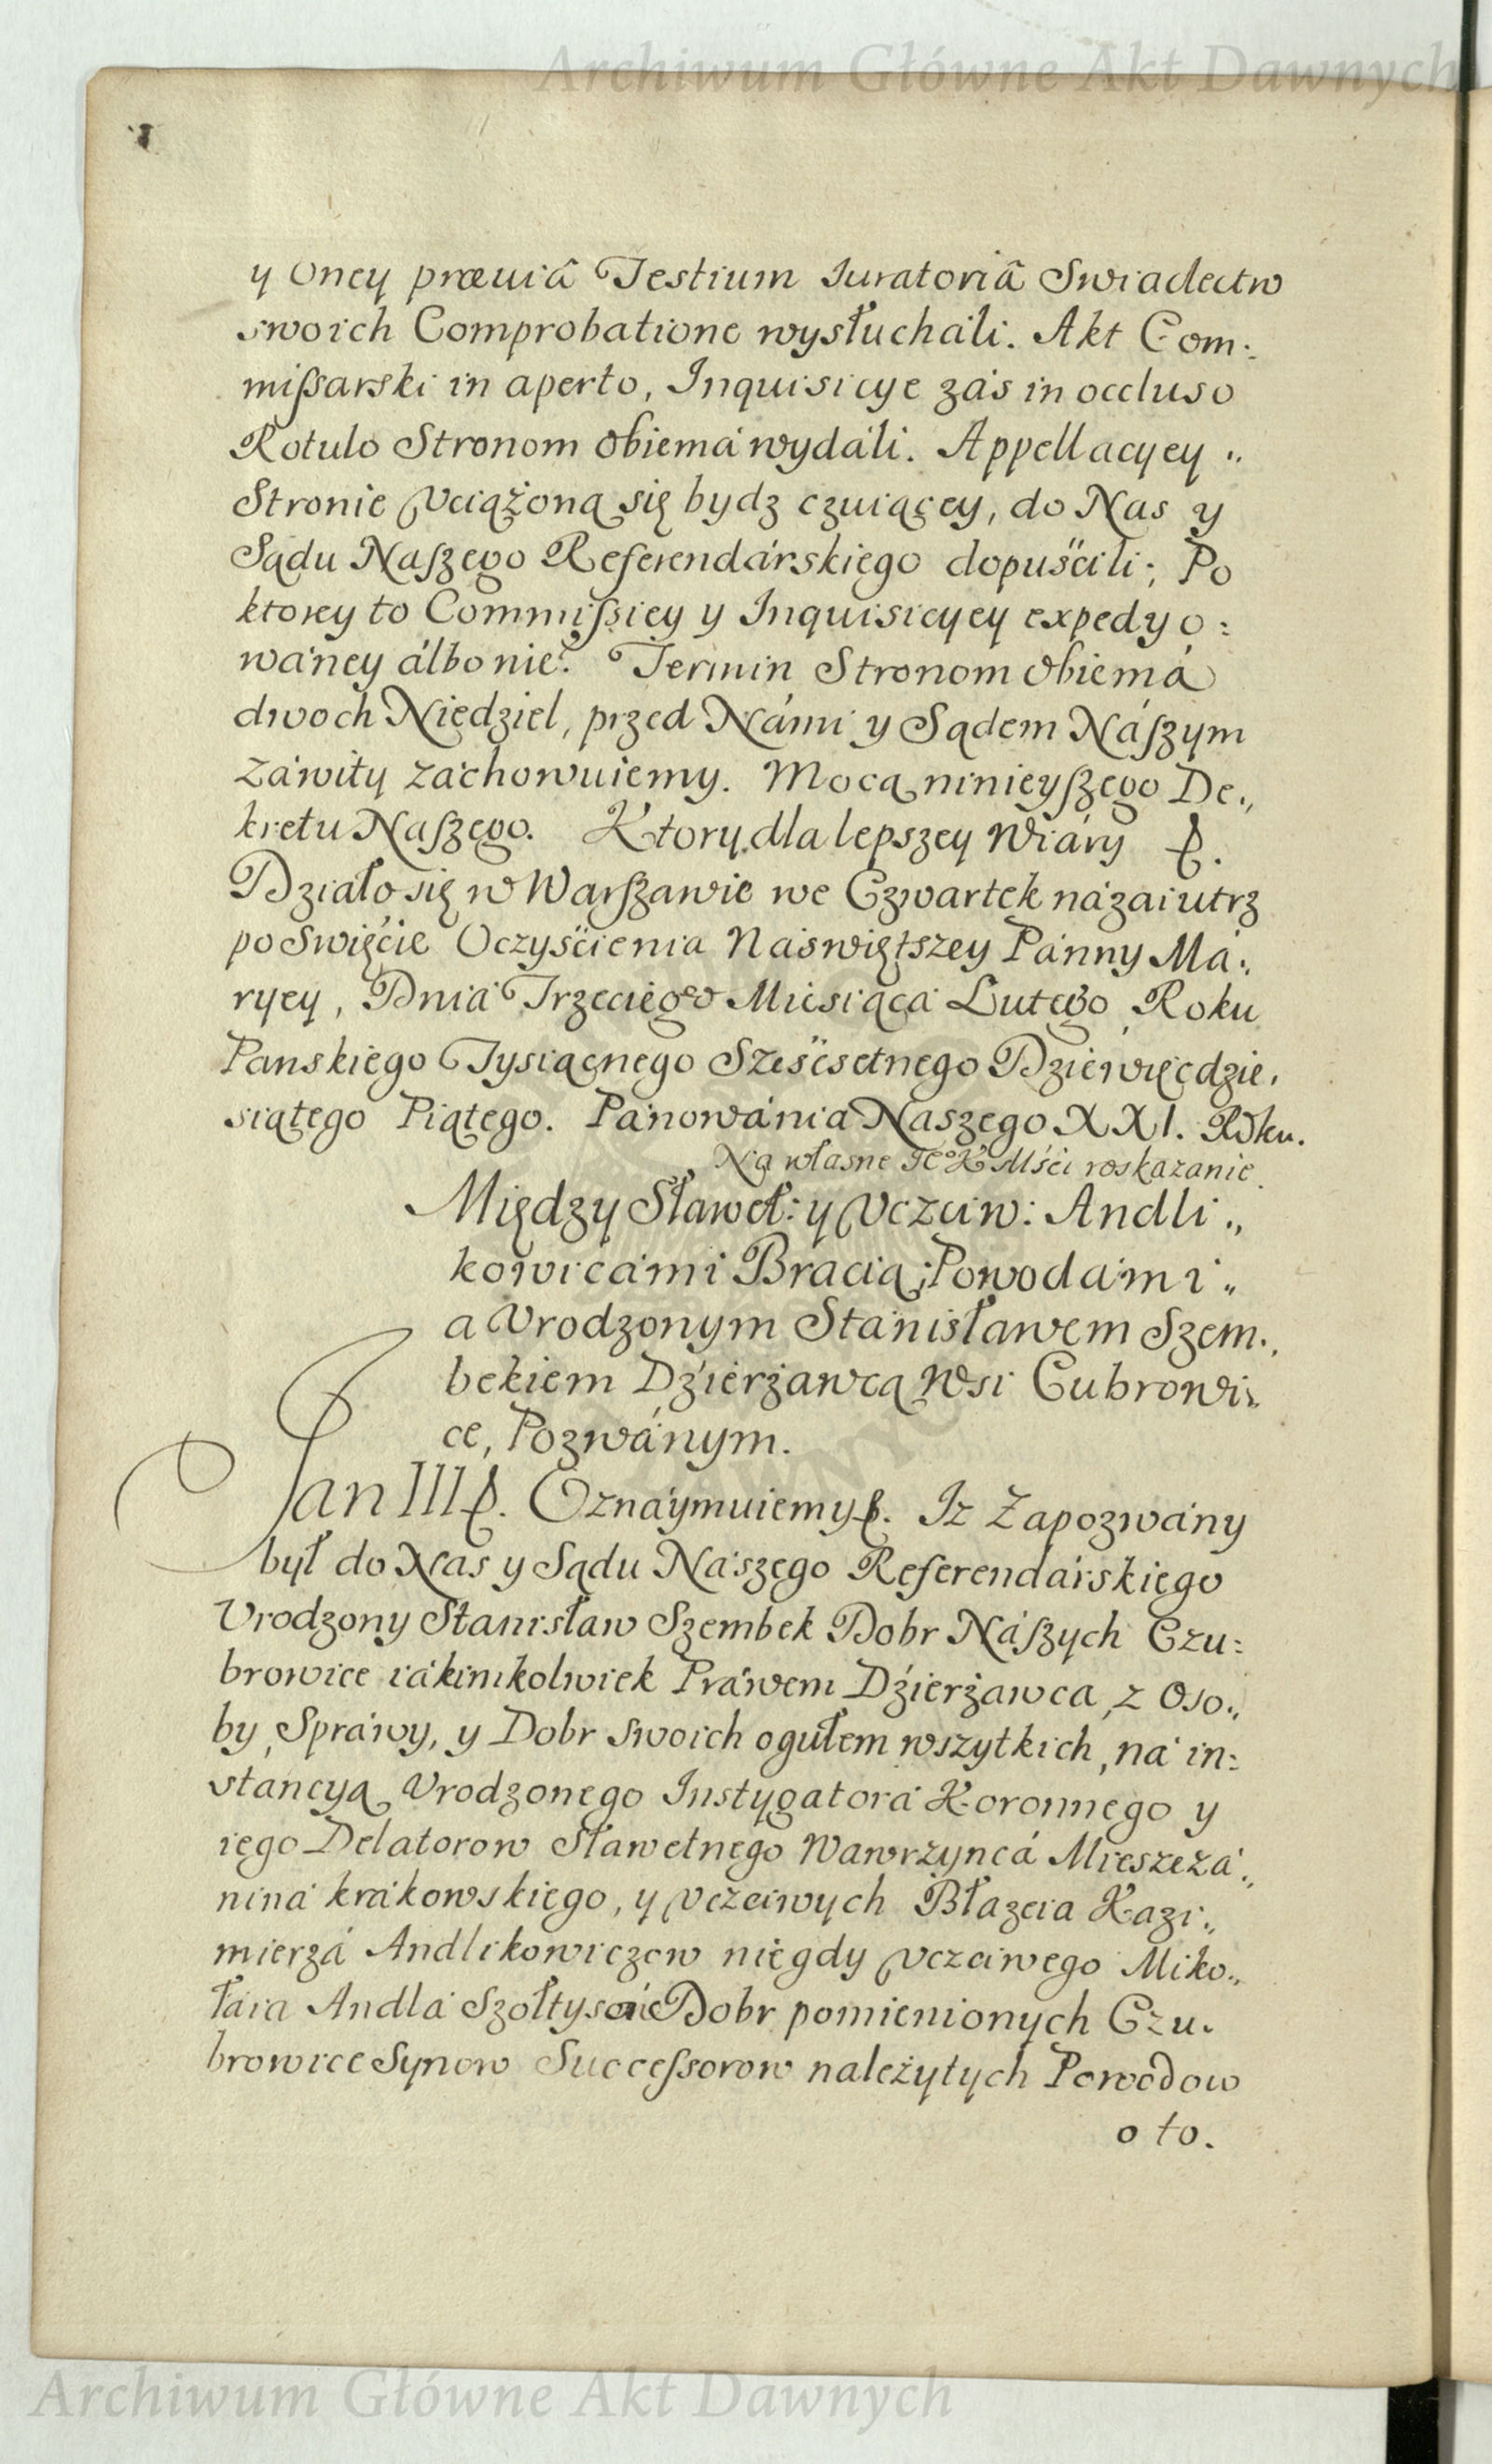 Archiwum Główne Akt Dawnych
y Oney præuiâ Testium Iuratoriâ Swiadectw
swoich Comprobatione wysłucháli. Akt Com:
mißarski in aperto, Inquisicye zás in occluso
Rotulo Stronom obiemá wydáli. Appellacyey „
Stronie Vciążoną się bydz czuiącey, do Nas y
Sądu Naſzego Referendárskiego dopuścili; Po
ktorey to Commiſsiey y Inquisicyey expedyo:
wáney álbo nie. Termin Stronom obiemá
dwoch Niedziel, przed Námi y Sądem Náſzym
Záwity záchowuiemy. Mocą ninieyſzego De„
kretu Naſzego. Ktory dla lepszey Wiáry &.
Działo się w Warſzawie we Czwartek názaiutrz
po Swięćie Oczyśćienia Náswiętszey Pánny Má:
ryey, Dniá Trzeciego Miesiącá Lutego, Roku
Panskiego Tysiącnego Szesćsetnego Dziewięćdzie,
siątego Piątego. Pánowánia Naszego XXI. Roku.
Na własne JeKMści roskazanie.
Między Sławet: y Vczciw: Andli„
kowicámi Bracią; Powodámi „
a Vrodzonym Stánisławem Szem.,
bekiem Dźierżawcą Wsi Cubrowi„
ce, Pozwánym.
Jan III &. Oznáymuiemy &. Iż Zapozwány
był do Nas y Sądu Nászego Referendárskiego
Vrodzony Stanisław Szembek Dobr Náſzych Czu:
browice iákimkolwiek Práwem Dźierżawca, z Oso„
by, Spráwy, y Dobr swoich ogułem wszytkich, ná in:
stancyą Vrodzonego Instygatorá Koronnego y
iego Delatorow Sławetnego Wawrzyncá Mieszczá„
niná krákowskiego, y Vczciwych Błażeia Kazi„
mierzá Andlikowiczow niegdy Vczciwego Miko„
łáia Andlá Szołtysá Dobr pomienionych Czu.
browice Synow Succeſsorow należytych Powodow
o to.
Archiwum Główne Akt Dawnych